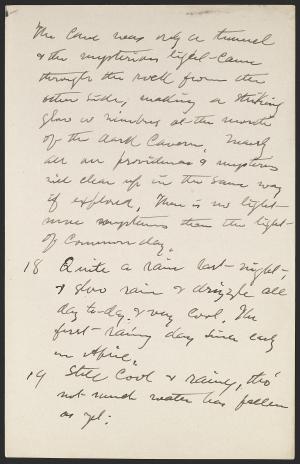 The cave was only a tunnel
& the mysterious light came
through the rock from the
other side, making a striking
glow or nimbus at the mouth
of the dark cavern. Nearly
all our providences & mysteries
will clear up in the same way
if explored. There is no light
more mysterious than the light
of common day.
18 Quite a rain last-night,
& slow rain & drizzle all
day to-day, & very cool. The
first rainy day since early
in April.
19 Still cool & rainy, tho'
not much water has fallen
as yet: